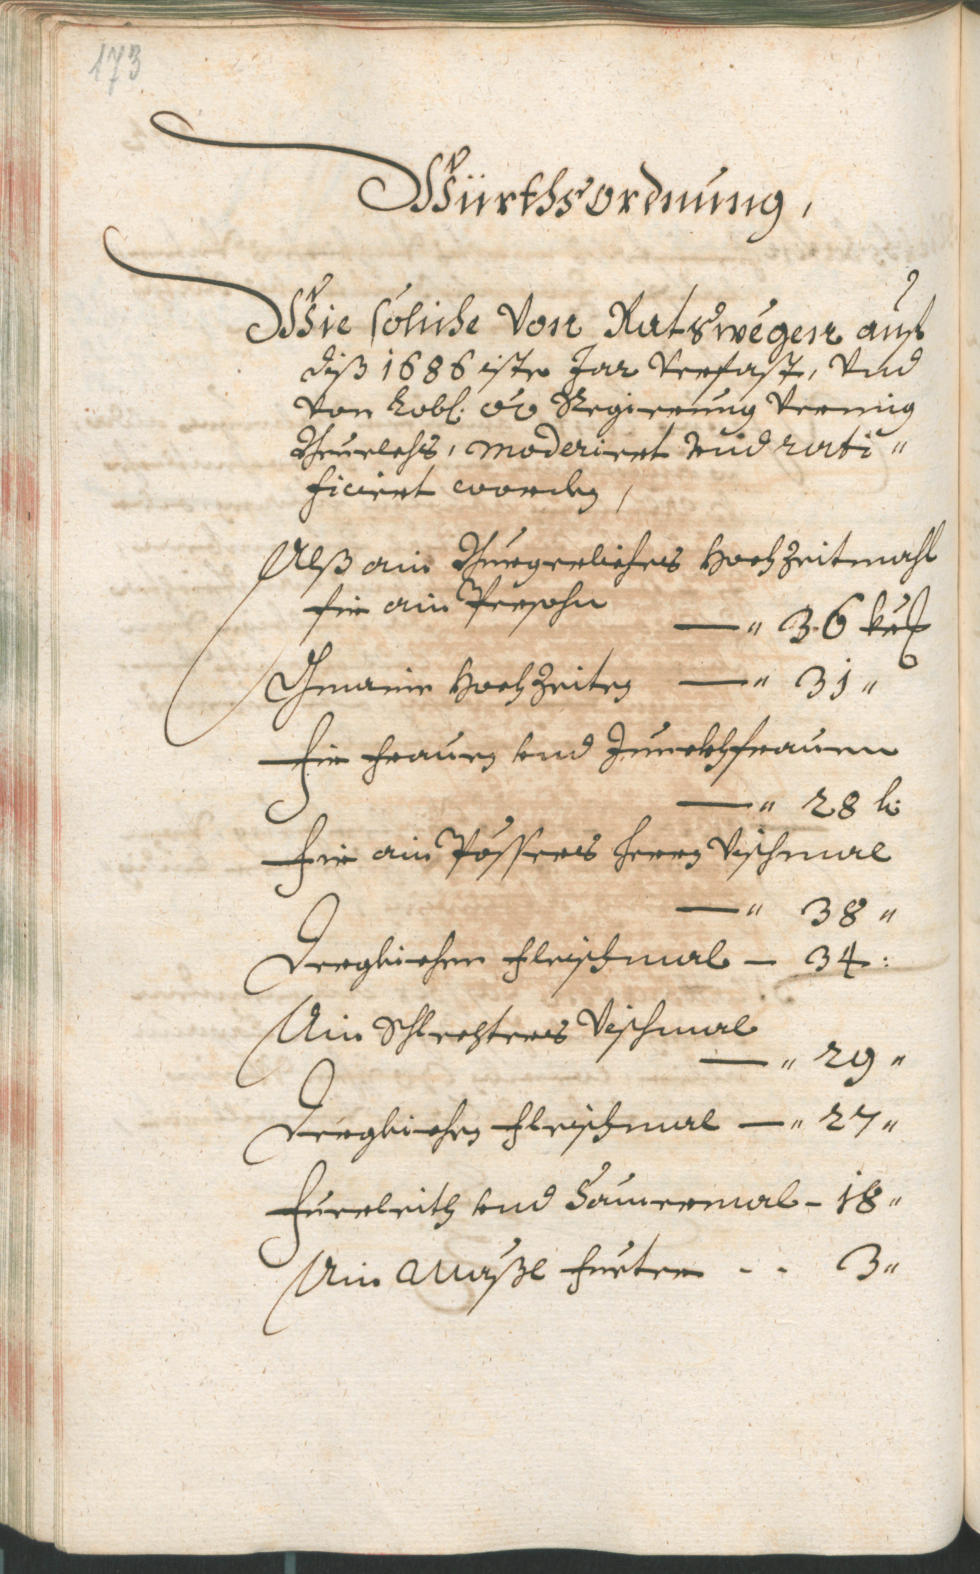 173
Würthsordnung,
Wie soliche von Ratswegen auf
diß 1686 iste Jar verfast, vnd
von Lobl: OÖ Regierung wenig
moderiert vnd rati„
ficiert worden,
Alß ain Burgerliches Hochzeitmahl
fir ain Persohn
—„ 36 kr
Gmaine Hochzeiten —„ 31„
Fir Frauen vnd Junckhfrauen
—„ 28 k:
Fir ain Pössers Herrn Vischmal
—„ 38„
Dergleichen Fleischmal — 34:
Ain Schlechteres Vischmal
—„ 29„
Dergleichen Fleischmal —„ 27„
Fuerleith vnd Sämermal – 18„
Ain Mäßl Fueter - - 3„